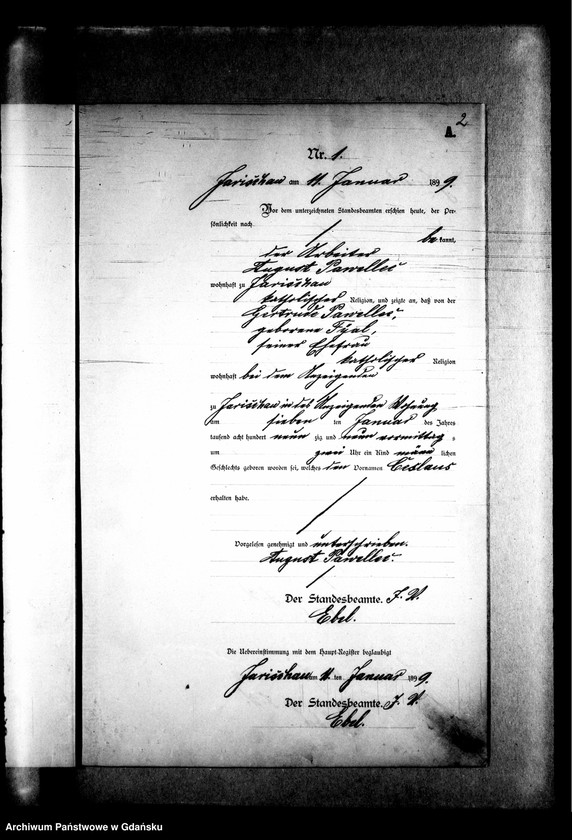 2
A.
Nr. 1.
Jarischau am 11. Januar 1899.
Vor dem unterzeichneten Standesbeamten erschien heute, der Per-
sönlichkeit nach
bekannt,
der Arbeiter
August Pawelles
wohnhaft zu Jarischau
katholischer Religion, und zeigte an, daß von der
Gertrude Pawelles,
geborene
seiner Ehefrau
katholischer Religion
wohnhaft bei dem Anzeigenden
zu Jarischau in des Anzeigenden Wohnung
am sieben ten Januar des Jahres
tausend acht hundert neun zig und neun vormittag s
um zwei Uhr ein Kind männ lichen
Geschlechts geboren worden sei, welches den Vornamen Ceslaus
erhalten habe.
Vorgelesen genehmigt und unterschrieben.
August Pawelles.
Der Standesbeamte. J. V.
Ebel.
Die Uebereinstimmung mit dem Haupt-Register beglaubigt
Jarischau am 11 ten Januar 1899.
Der Standesbeamte. J. V.
Ebel.
Archiwum Państwowe w Gdańsku